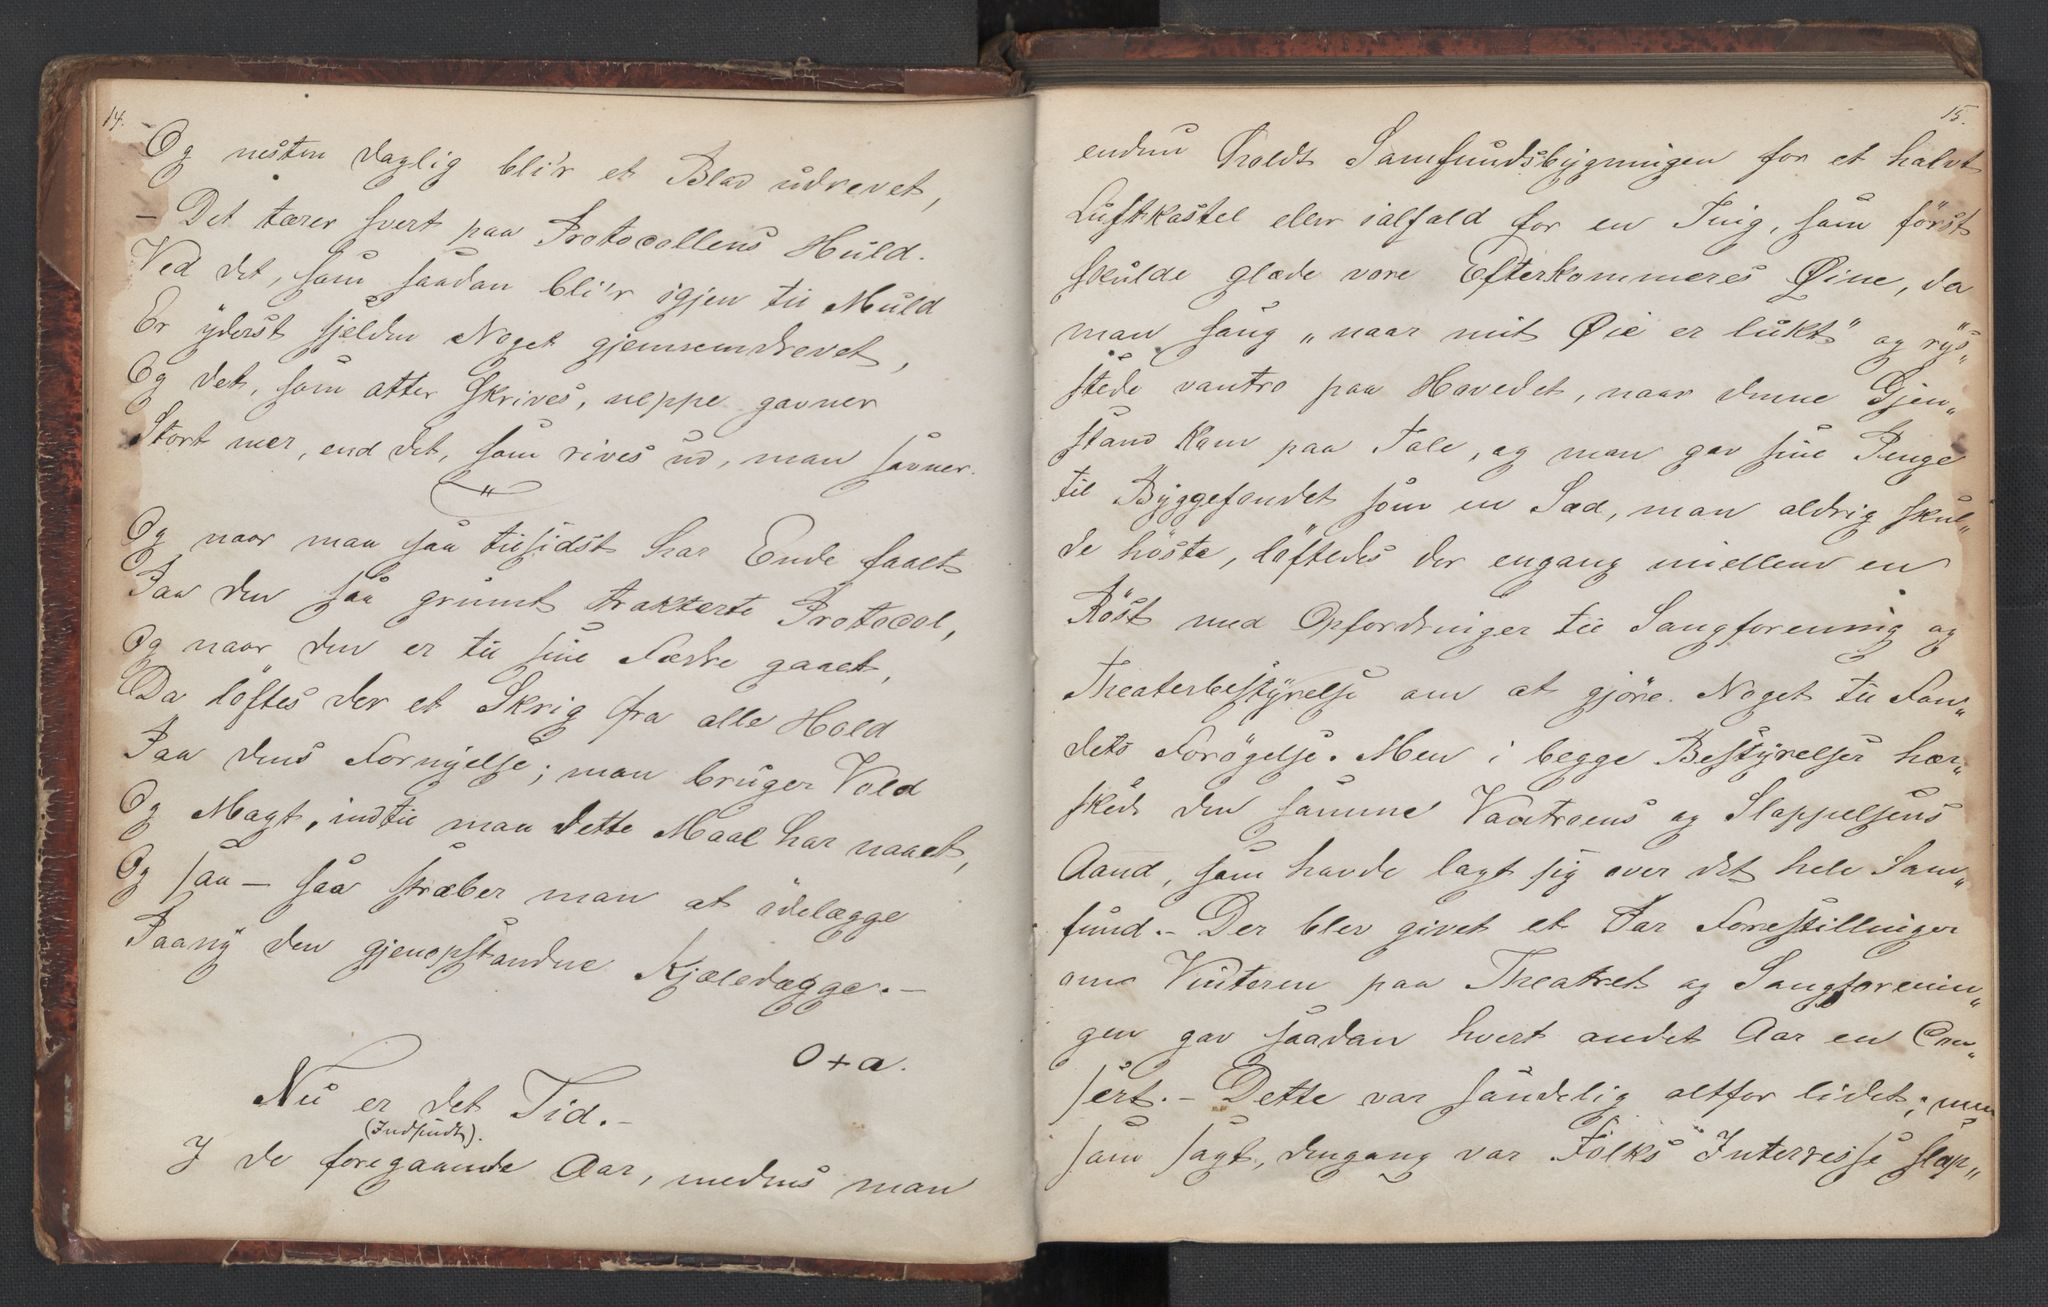 14.
Og nesten daglig bli'r et Blad udrevet,
– Det tærer svert paa Protocollens Huld.
Ved det, som saadan bli'r igjen til Muld
Er yderst sjelden Noget gjennemdrevet,
Og det, som atter skrives, neppe gavner
Stort mer, end det, som rives ud, man savner.
Og naar man saa tilsidst har Ende faaet
Paa den saa grumt trakterte Protocol,
Og naar den er til sine Fædre gaaet,
Da løftes der et Skrig fra alle Hold
Paa dens Fornyelse; man bruger Vold
Og Magt, indtil man dette Maal har naaet,
Og saa – saa stræber man at ödelægge
Paany den gjenopstandne Kjæledægge. –
O + a.
Nu er det Tid. –
(Indsendt).
I de foregaaende Aar, medens man
15.
endnu holdt Samfundsbygningen for et halvt
Luftkastel eller ialfald for en Ting, som först
skulde glæde vore Efterkommeres Øine, da
man sang „naar mit Øie er lukt" og rys„
stede vantro paa Hovedet, naar denne Gjen„
stand kom paa Tale, og man gav sine Penge
til Byggefondet som en Sæd, man aldrig skul„
de höste, löftedes der engang imellem en
Röst med Opfordringer til Sangforening og
Theaterbestyrelse om at gjöre Noget til Fon„
dets Forögelse. Men i begge Bestyrelser her„
skede den samme Vantroens og Slappelsens
Aand, som havde lagt sig over det hele Sam„
fund. – Der blev givet et Par Forestillinger
om Vinteren paa Theatret og Sangforenin„
gen gav saadan hvert andet Aar en Con„
sert. – Dette var sandelig altfor lidet; men
som sagt, dengang var Folks Interesse slap„